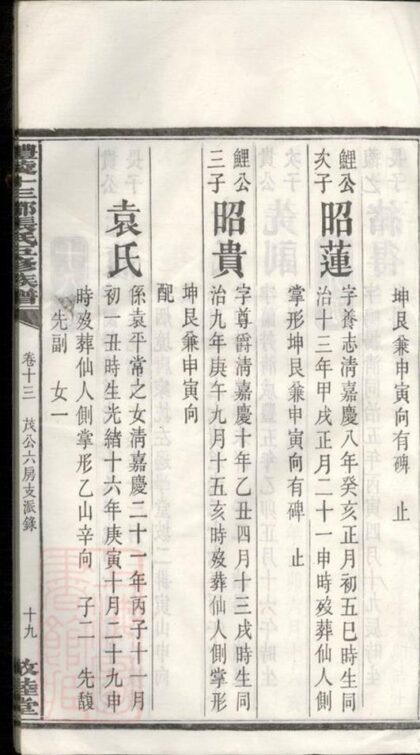 坤艮兼申寅向　止
鯉公次子
昭蓮
字養志清嘉慶八年癸亥正月初五巳時生同
治十三年甲戌正月二十一申時歿葬仙人側
掌形坤艮兼申寅向有碑　止
鯉公三子
昭貴
字尊爵清嘉慶十年乙丑四月十三戌時生同
治九年庚午九月十五亥時歿葬仙人側掌形
坤艮兼申寅向
配
袁氏
係袁平常之女清嘉慶二十一年丙子十一月
初一丑時生光緒十六年庚寅十月二十九申
時歿葬仙人側掌形乙山辛向　子二　先馥
先副　女一
醴陵十三都張氏五修族譜
卷十三　茂公六房支派錄
十九
敦睦堂